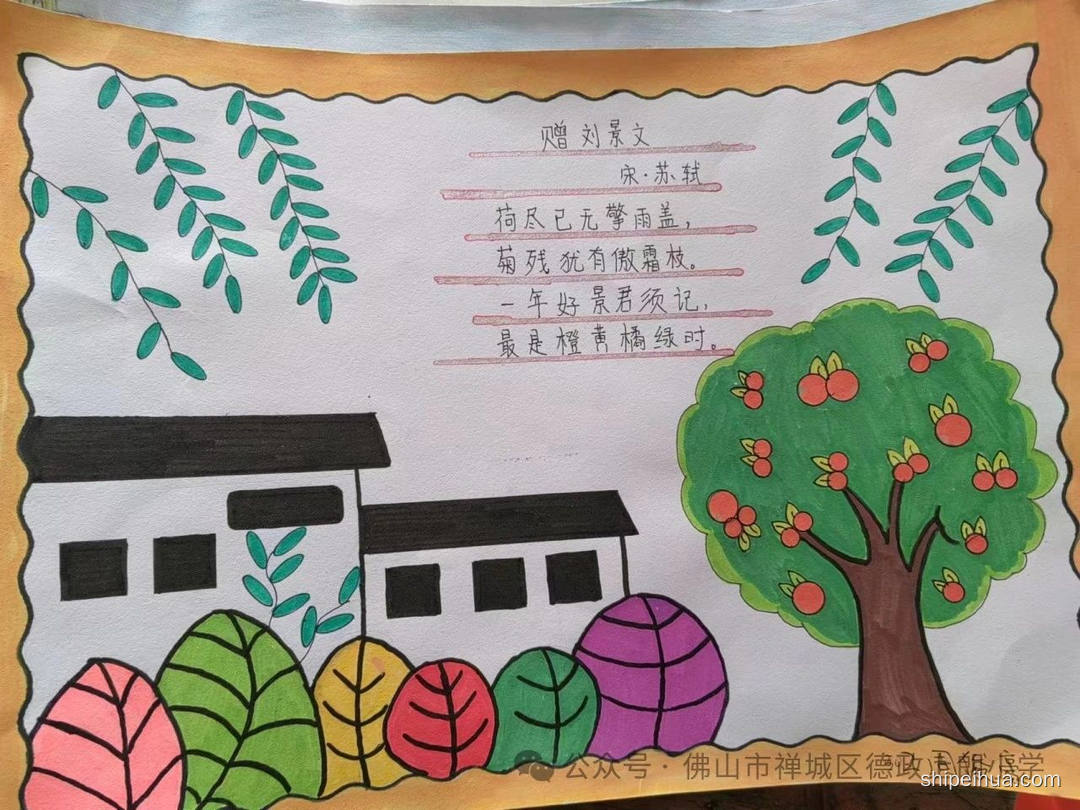 赠刘景文
宋·苏轼
荷尽已无擎雨盖，
菊残犹有傲霜枝。
一年好景君须记，
最是橙黄橘绿时。
公众号·佛山市禅城区德政
学
shipeihua.com